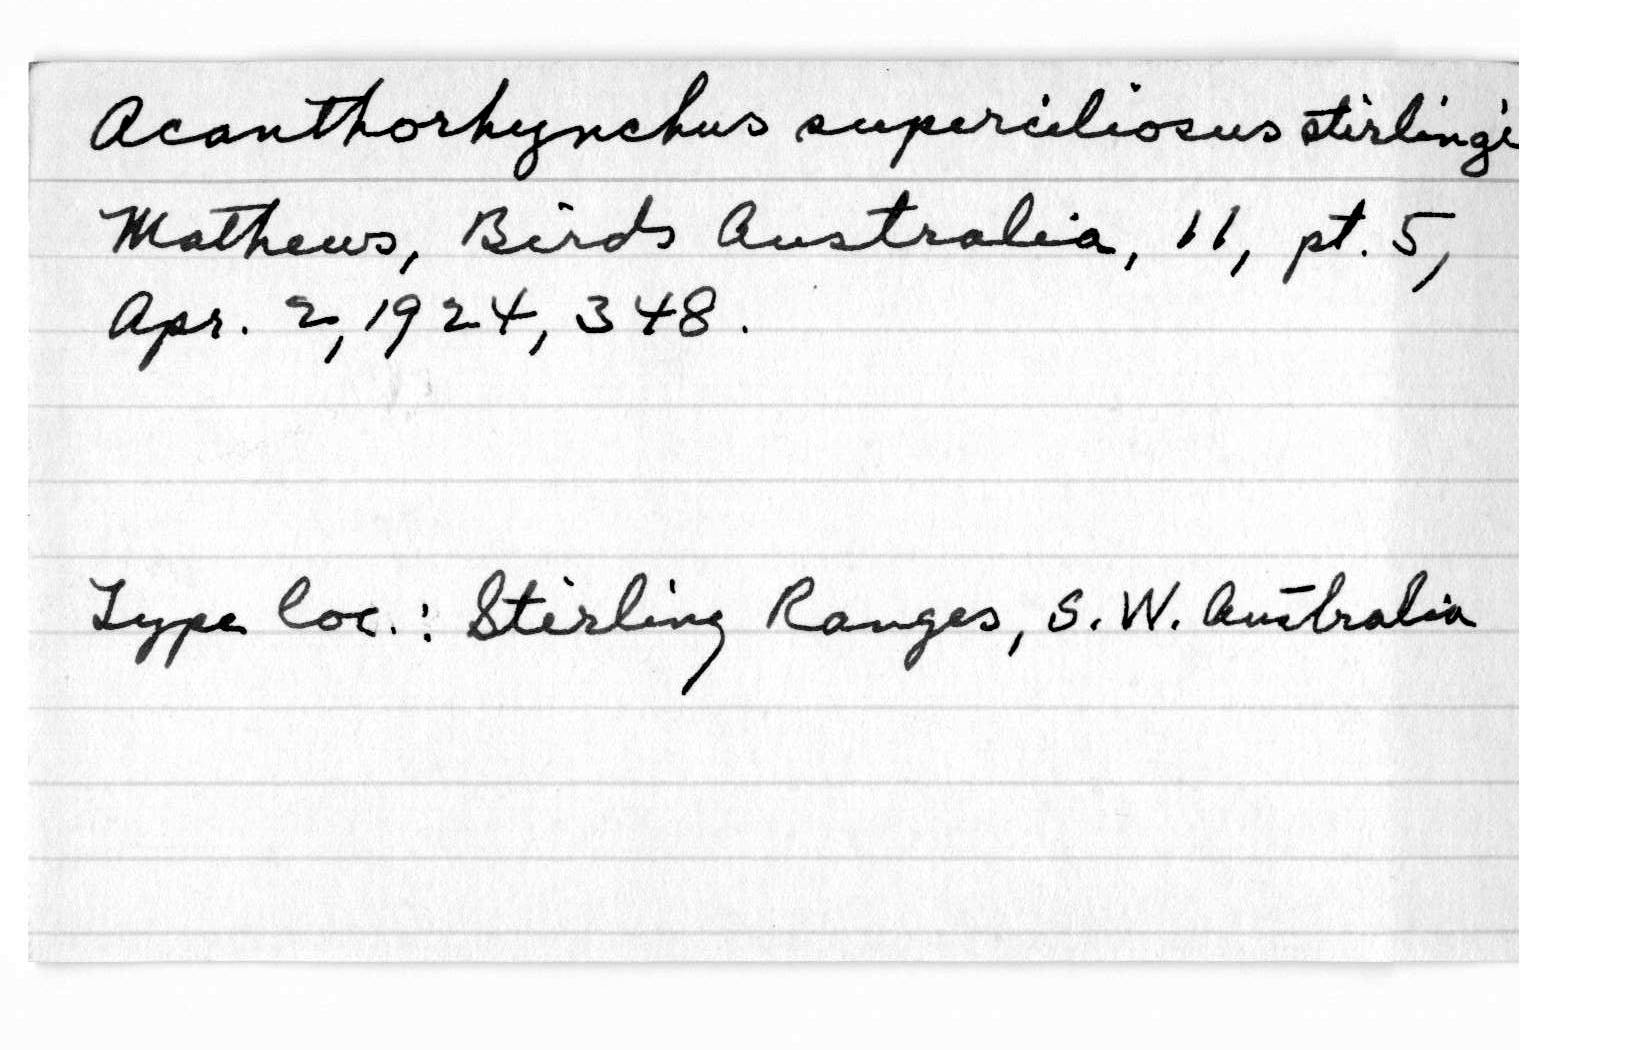 Acanthorhynchus superciliosus stirlingi
Mathews, Birds Australia, 11, pt. 5,
Apr. 2, 1924, 348.
Type loc.: Stirling Ranges, S. W. Australia